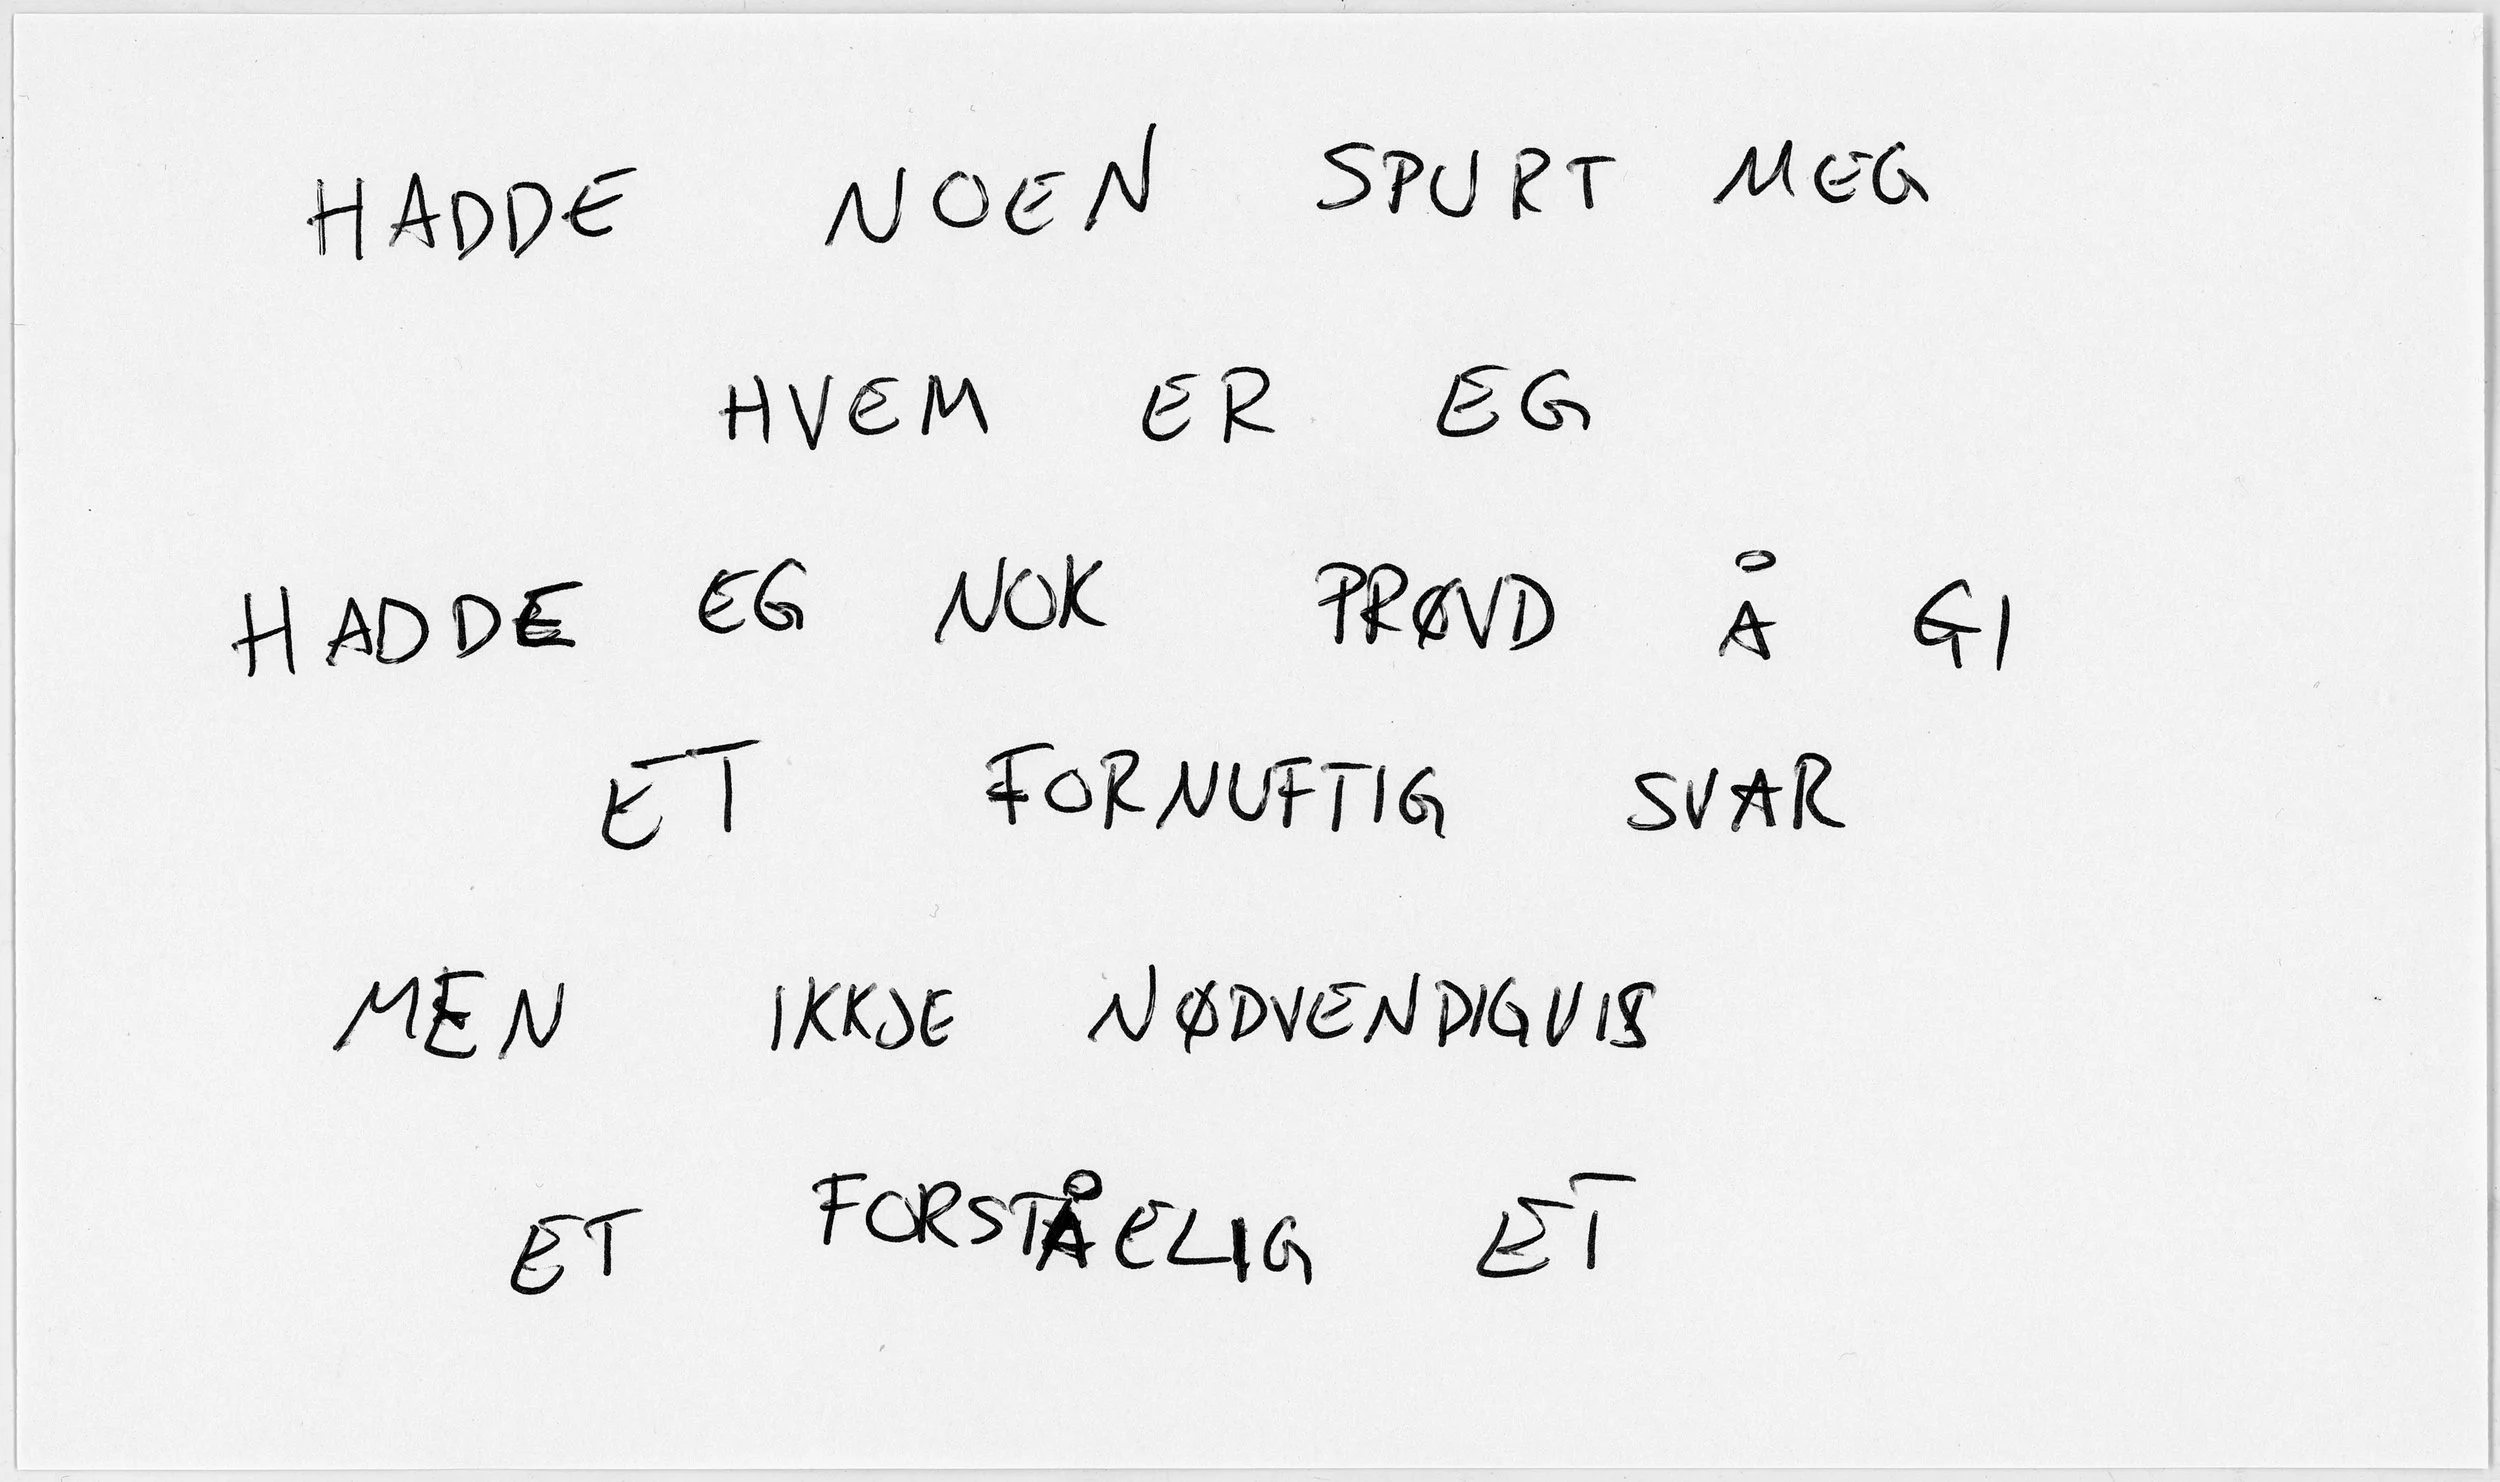 HADDE NOEN SPURT MEG
HVEM ER EG
HADDE EG NOK PRØVD Å GI
ET FORNUFTIG SVAR
MEN IKKJE NØDVENDIGVIS
ET FORSTÅELIG ET